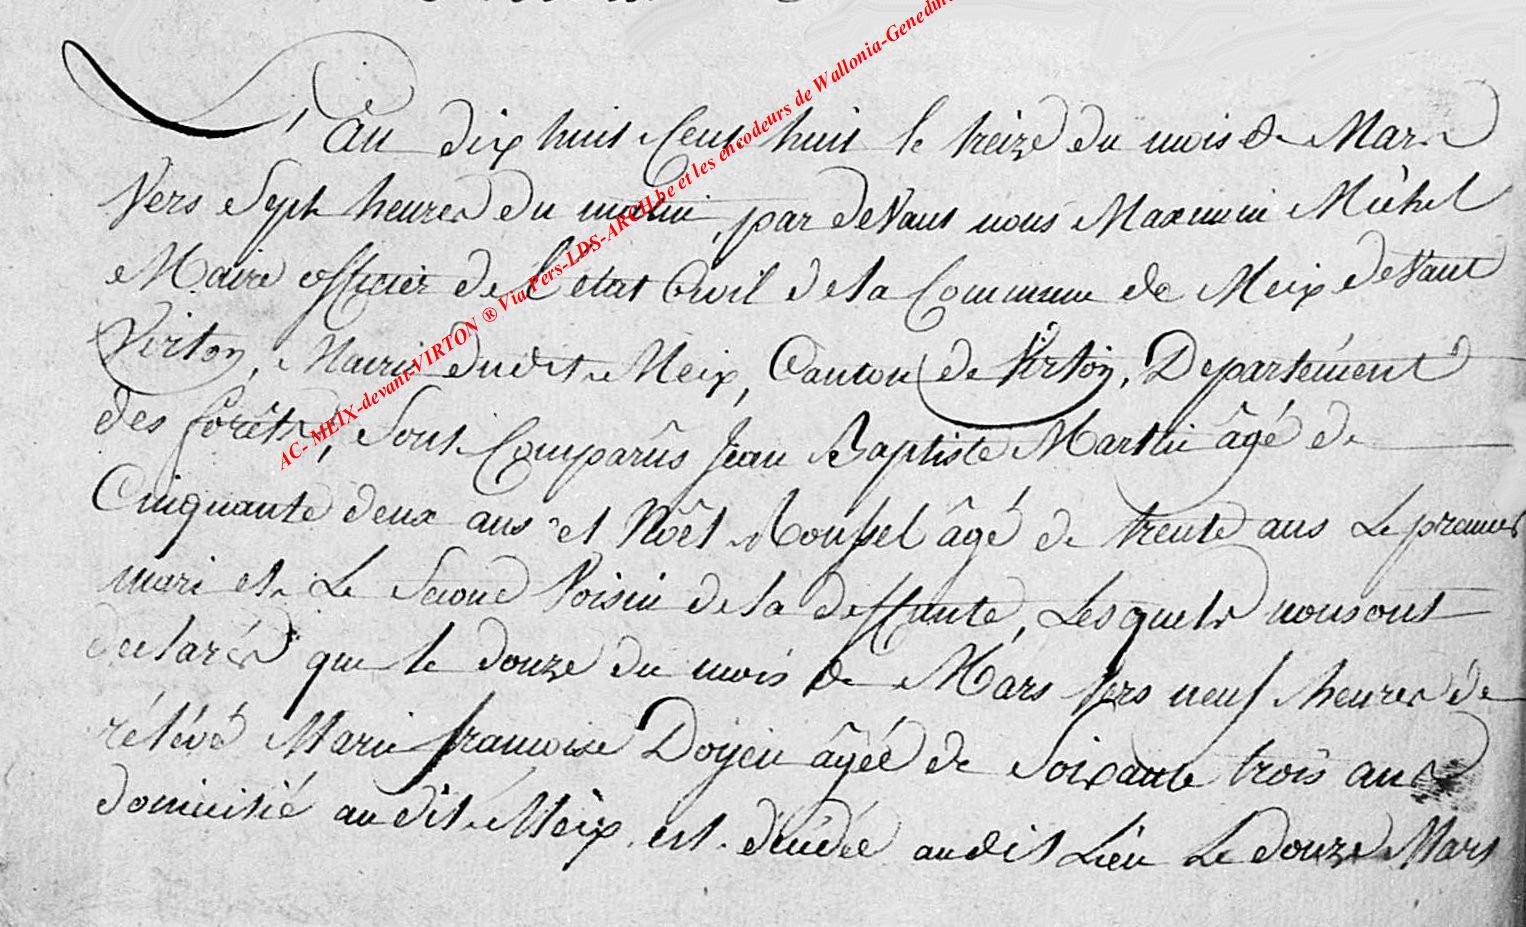 L'an dix huit Cent huit le treize du mois de Mars
Vers Sept heures du matin, par devant nous Maximin Michel
Maire officier de l'état Civil de la Commune de Meix devant
Virton, Mairie dudit Meix, Canton de Virton, Departément
des forêts, Sont Comparûs Jean Baptiste Martin âgé de
Cinquante deux ans et Noêl Roussel âgé de trente ans Le premier
mari et Le Second Voisin de la deffunte, Lesquels nous ont
declarés que le douze du mois de Mars Vers neuf heures de
rélévé Marie françoise Doyen âgée de Soixante trois ans
domicilié audit Meix est décédée audit Lieu Le douze Mars
AC- MEIX-devant-VIRTON ® Via Pers-LDS-ARCH.be et les encodeurs de Wallonia-Genedin